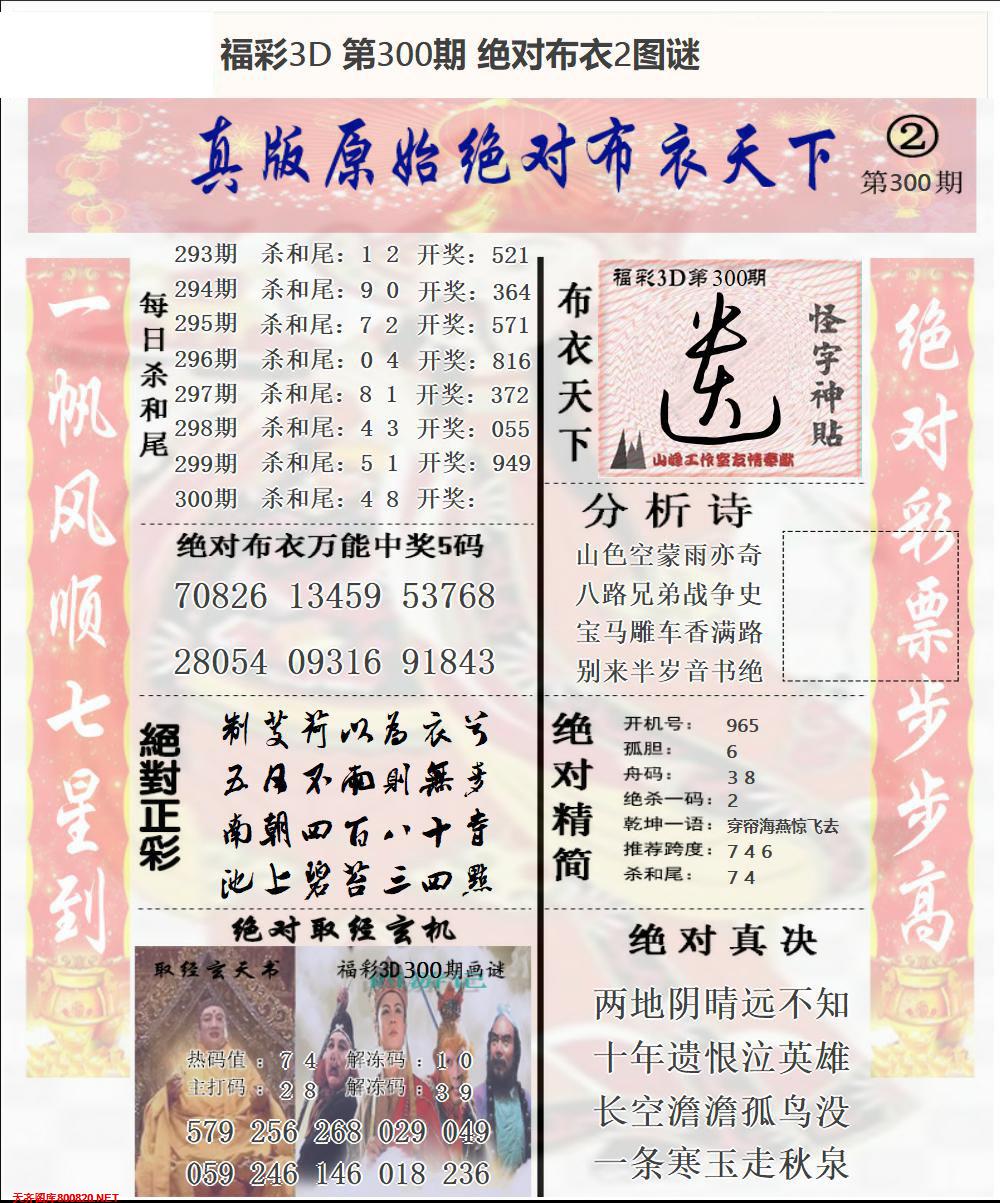 福彩3D 第300期 绝对布衣2图谜
真版原始绝对布衣天下
②
第300期
一帆风顺七星到
每日杀和尾
293期 杀和尾：1 2 开奖：521
294期 杀和尾：9 0 开奖：364
295期 杀和尾：7 2 开奖：571
296期 杀和尾：0 4 开奖：816
297期 杀和尾：8 1 开奖：372
298期 杀和尾：4 3 开奖：055
299期 杀和尾：5 1 开奖：949
300期 杀和尾：4 8 开奖：
绝对布衣万能中奖5码
70826 13459 53768
28054 09316 91843
絕對正彩
制芰荷以为衣兮
五月不雨則無麥
南朝四百八十寺
池上碧苔三四點
绝对取经玄机
取经玄天书
福彩3D300期画谜
热码值：7 4 解冻码：1 0
主打码：2 8 解冻码：3 9
579 256 268 029 049
059 246 146 018 236
布衣天下
福彩3D第300期
怪字神貼
山峰工作室友情奉献
分析诗
山色空蒙雨亦奇
八路兄弟战争史
宝马雕车香满路
别来半岁音书绝
绝对精简
开机号： 965
孤胆： 6
舟码： 3 8
绝杀一码： 2
乾坤一语： 穿帘海燕惊飞去
推荐跨度： 7 4 6
杀和尾： 7 4
绝对真决
两地阴晴远不知
十年遗恨泣英雄
长空澹澹孤鸟没
一条寒玉走秋泉
绝对彩票步步高
天齐图库800820.NET